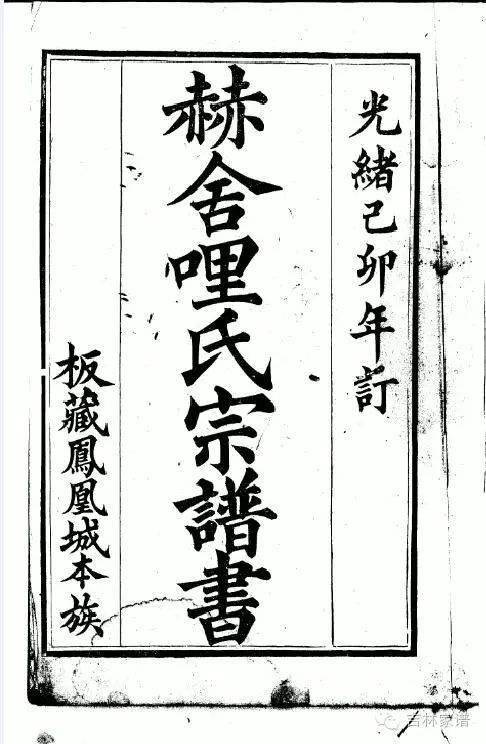 光緒己卯年訂
赫舍哩氏宗譜書
板藏鳳凰城本族
吉林家谱